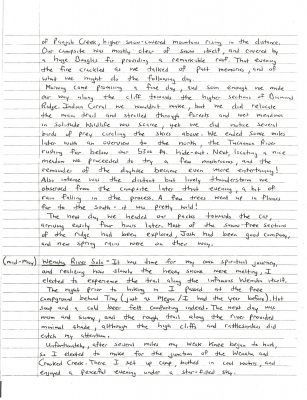 of Panjab Creek, higher snow-covered mountain rising in the distance.
Our campsite was mostly clear of snow itself, and covered by
a huge Douglas fir providing a remarkable roof. That evening
the fire crackled as we talked of past memories, and of
what we might do the following day.
Morning came promising a fine day, and soon enough we made
our way along the cliff towards the higher sections of Diamond
Ridge. Indian Corral we wouldn't make, but we did relocate
the main trail and strolled through forests and wet meadows
in solitude. Wildlife was scarce, yet we did notice several
birds of prey circling the skies above. We ended some miles
later with an overview to the north, the Tucannon River
rushing far below our
hide-out. Next, locating a nice
meadow we proceeded to try a few mushrooms, and the
remainder of the daytime became even more entertaining!
Also intense was the distant but lively thunderstorm we
observed from the campsite later that evening, a bit of
rain falling in the process. A few trees went up in flames
far to the south - it was pretty wild!
The next day we headed our packs towards the car,
arriving early four hours later. Most of the snow-free sections
of the ridge had been explored, Josh had been good company,
and new spring rains were on their way.
(mid-May) Wenaha River Solo - It was time for my own spiritual journey,
and realizing how slowly the heavy snows were melting, I
elected to experience the trail along the infamous Wenaha itself.
The night prior to hiking in I passed at the free
campground behind Troy (just as Megan / I had the year before). Hot
soup and a cold beer felt comforting indeed. The next day was
warm and sunny, and the rough trail along the river provided
minimal shade, although the high cliffs and rattlesnakes did
catch my attention.
Unfortunately, after several miles my weak knee began to hurt,
so I elected to make for the junction of the Wenaha and
Crooked Creek. There I set up camp, bathed in cool waters, and
enjoyed a peaceful evening under a star-filled sky.